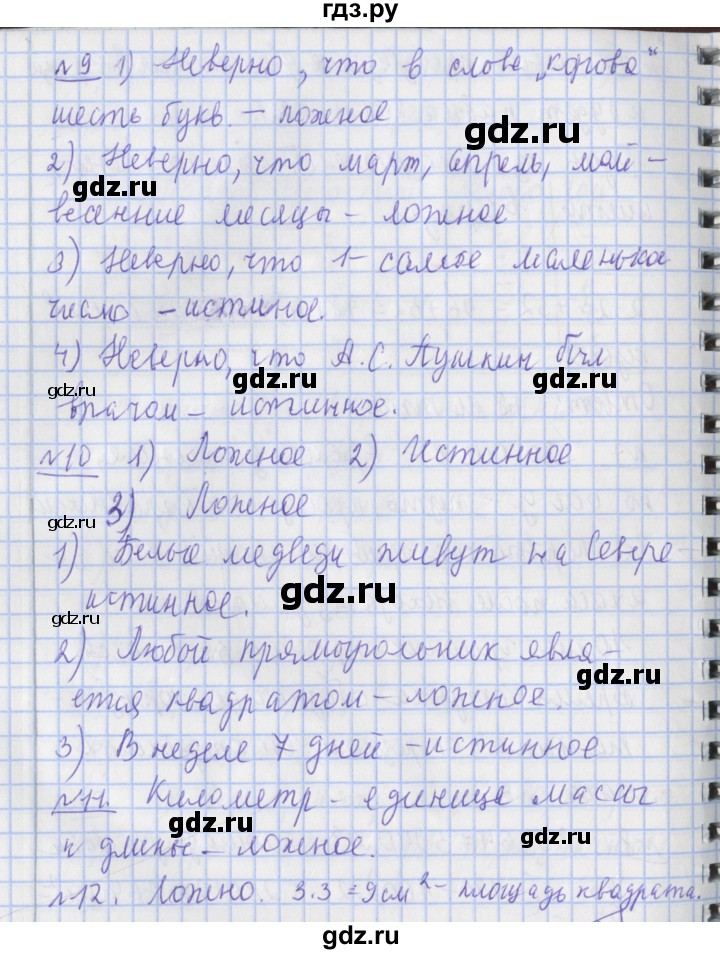 гдз.ру
№9 1) Неверно, что в слове „корова“
шесть букв. – ложное
gdz.ru
2) Неверно, что март, апрель, май –
gdz.ru gdz.ru
весенние месяцы – ложное
3) Неверно, что 1 – самое маленькое
число – истиное.
4) Неверно, что А.С. Пушкин был
gdz.ru gdz.ru gdz.ru
врачом – истинное.
№10 1) Ложное 2) Истинное
3) Ложное
gdz.ru
1) Белые медведи живут на Севере –
gdz.ru
истинное.
gdz.ru
2) Любой прямоугольник явля-
gdz.ru
ется квадратом – ложное.
3) В неделе 7 дней – истинное
№11. Километр – единица массы
gdz.ru gdz.ru
и длины – ложное.
№12. Ложно. 3·3=9см² – площадь квадрата.
gdz.ru